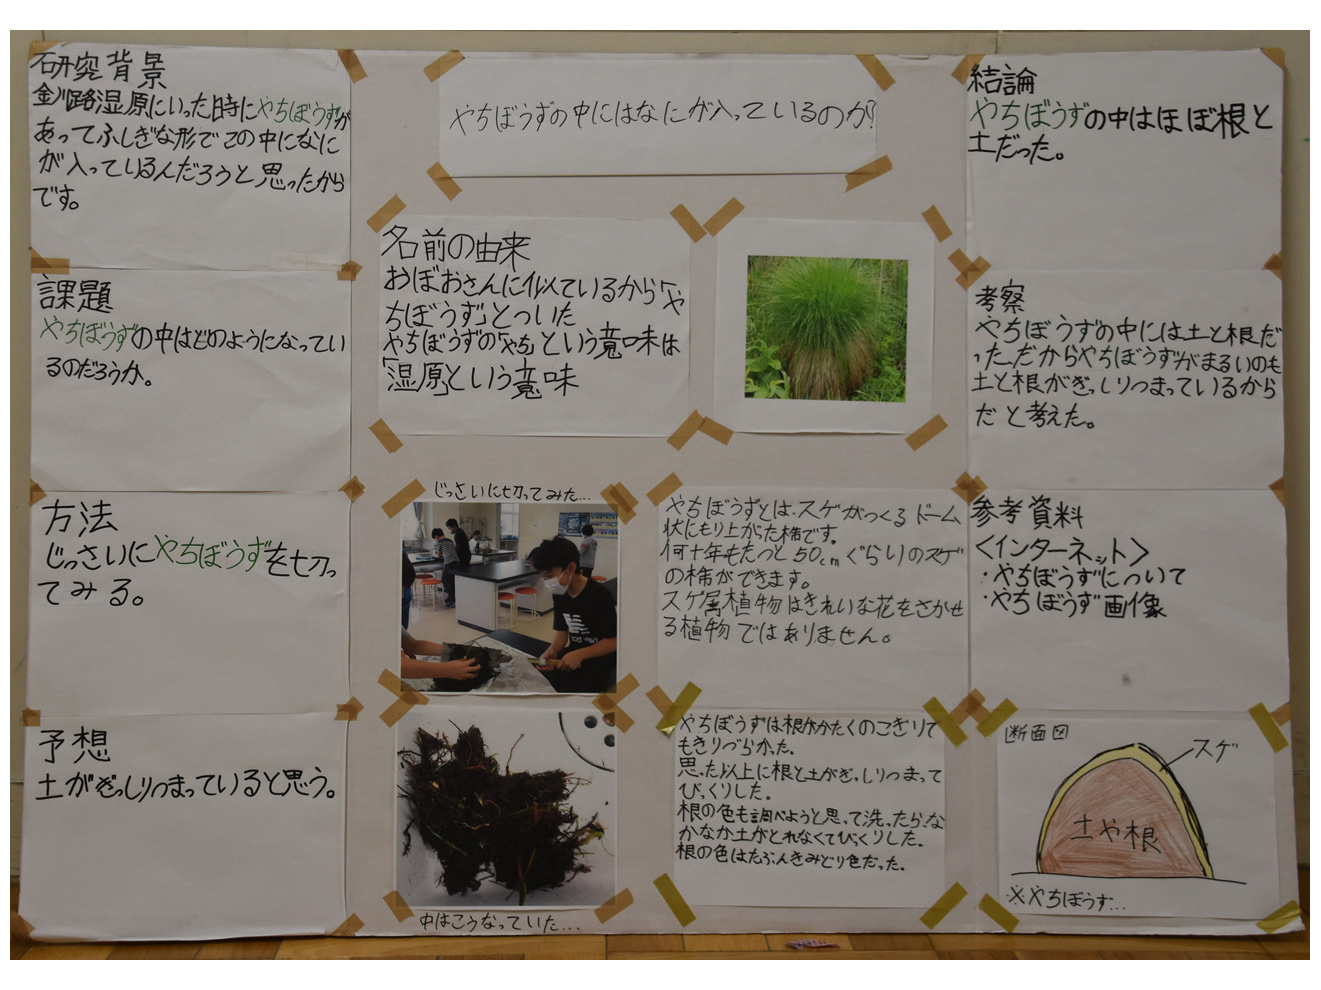 やちぼうずの中にはなにが入っているのか?
研究背景
釧路湿原にいった時にやちぼうずが
あってふしぎな形でこの中になに
が入っているんだろうと思ったから
です。
課題
やちぼうずの中はどのようになってい
るのだろうか。
方法
じっさいにやちぼうずを切っ
てみる。
予想
土がぎっしりつまっていると思う。
名前の由来
おぼおさんに似ているから「や
ちぼうず」とついた
やちぼうずの「やち」という意味は
「湿原」という意味
じっさいに切ってみた...
中はこうなっていた...
やちぼうずとは、スゲがつくるドーム
状にもり上がった株です。
何十年もたつと50cmぐらいのスゲ
の株ができます。
スゲ属植物はきれいな花をさかせ
る植物ではありません。
やちぼうずは根がかたくのこぎりで
もきりづらかった。
思った以上に根と土がぎっしりつまって
びっくりした。
根の色も調べようと思って洗ったら、な
かなか土がとれなくてびっくりした。
根の色はたぶんきみどり色だった。
結論
やちぼうずの中はほぼ根と
土だった。
考察
やちぼうずの中には土と根だ
った。だからやちぼうずがまるいのも
土と根がぎっしりつまっているから
だと考えた。
参考資料
<インターネット>
・やちぼうずについて
・やちぼうず画像
断面図
スゲ
土や根
※やちぼうず...